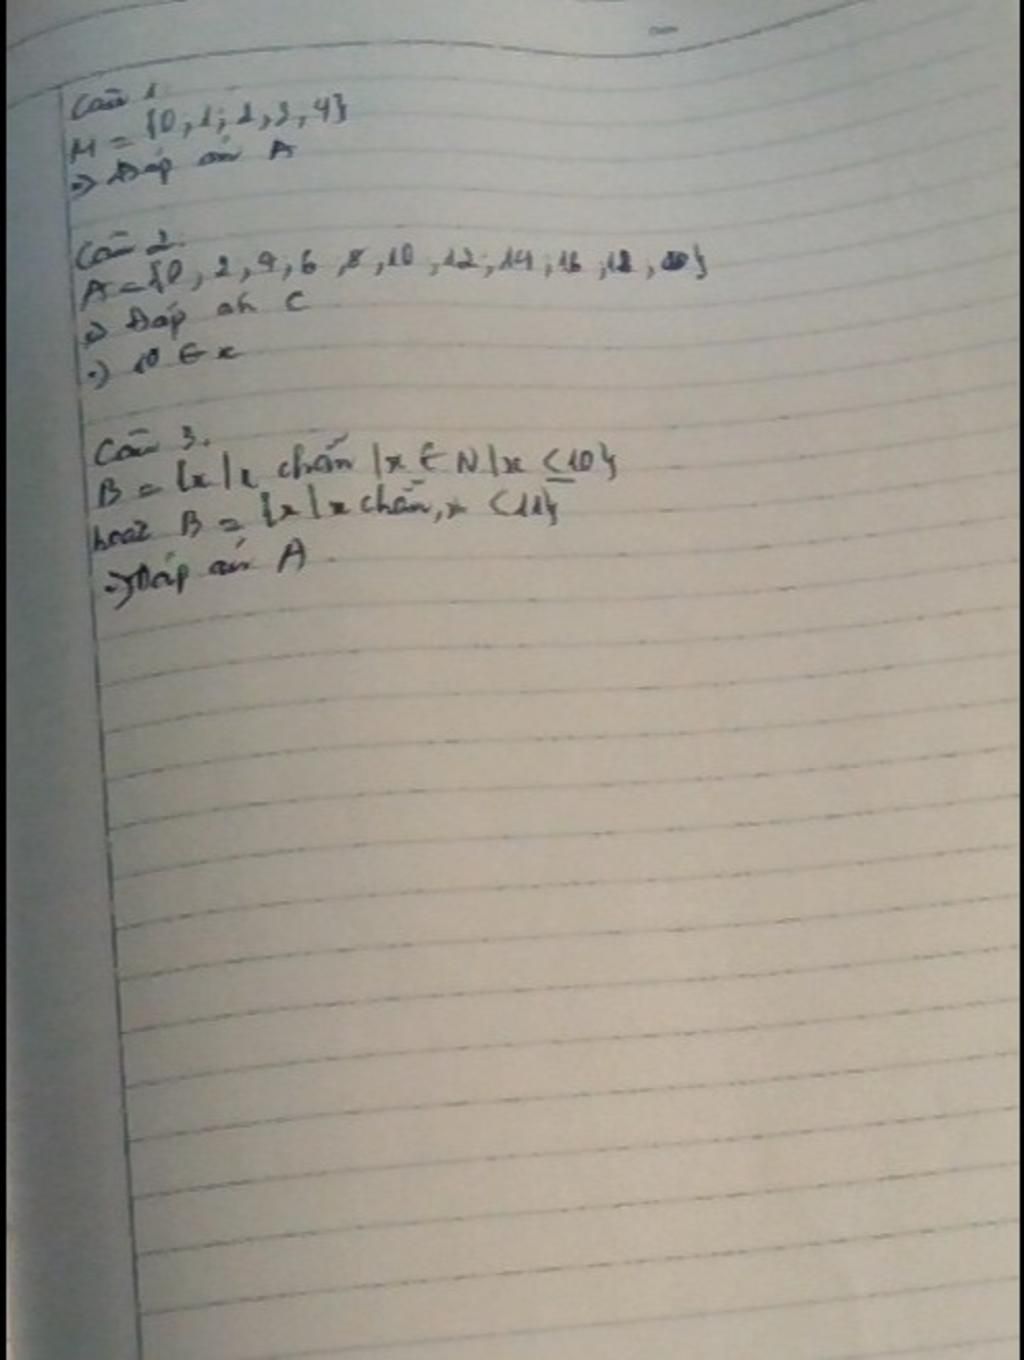 Câu 1
M = {0, 1; 2, 3, 4}
=> Đáp án A
Câu 2.
A = {0, 2, 4, 6, 8, 10, 12; 14, 16, 18, 20}
=> Đáp án C
=> 10 ∈ x
Câu 3.
B = {x | x chẵn | x ∈ N | x ≤ 10}
hoặc B = {x | x chẵn, x < 11}
=> Đáp án A